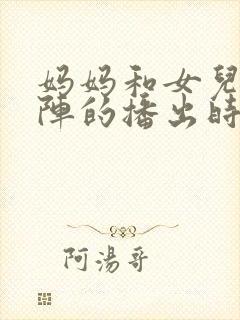 妈妈和女兒
陣的播出時
阿湯哥